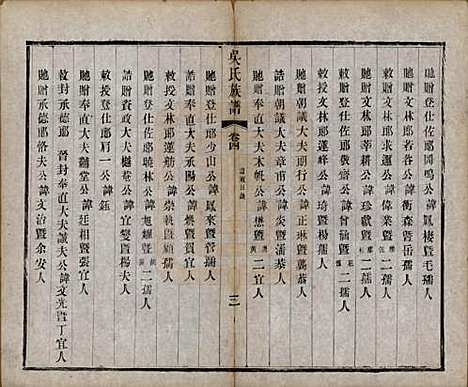 貤贈登仕佐郎岡鳴公諱鳳棲暨毛孺人
貤贈文林郎若谷公諱衡森暨岳孺人
貤贈文林郎莘耕公諱珍獻暨二孺人
貤贈文林郎公諱偉業暨二孺人
貤贈登仕佐郎敬齋公諱曾涵暨二孺人
敕授文林郎蓮峰公諱琦暨楊孺人
貤贈朝議大夫朗行公諱正琳暨龔恭人
誥贈朝議大夫章甫公諱炎暨潘恭人
貤贈奉直大夫木帆公諱懋暨二宜人
吳氏族譜
卷四
三
貤贈登仕佐郎少山公諱鳳來暨管孺人
誥贈奉直大夫承陽公諱暨袁宜人
敕授文林郎蓮舫公諱崇執暨顧孺人
貤贈登仕佐郎曉林公諱旭耀暨二孺人
誥贈資政大夫樾菴公諱宜燮暨楊夫人
敕授登仕郎肩一公諱鈺
貤贈奉直大夫翿堂公諱廷相暨張宜人
敕封承德郎 晉封奉直大夫誠夫公諱文光暨丁宜人
貤贈承德郎恪夫公諱文治暨余安人